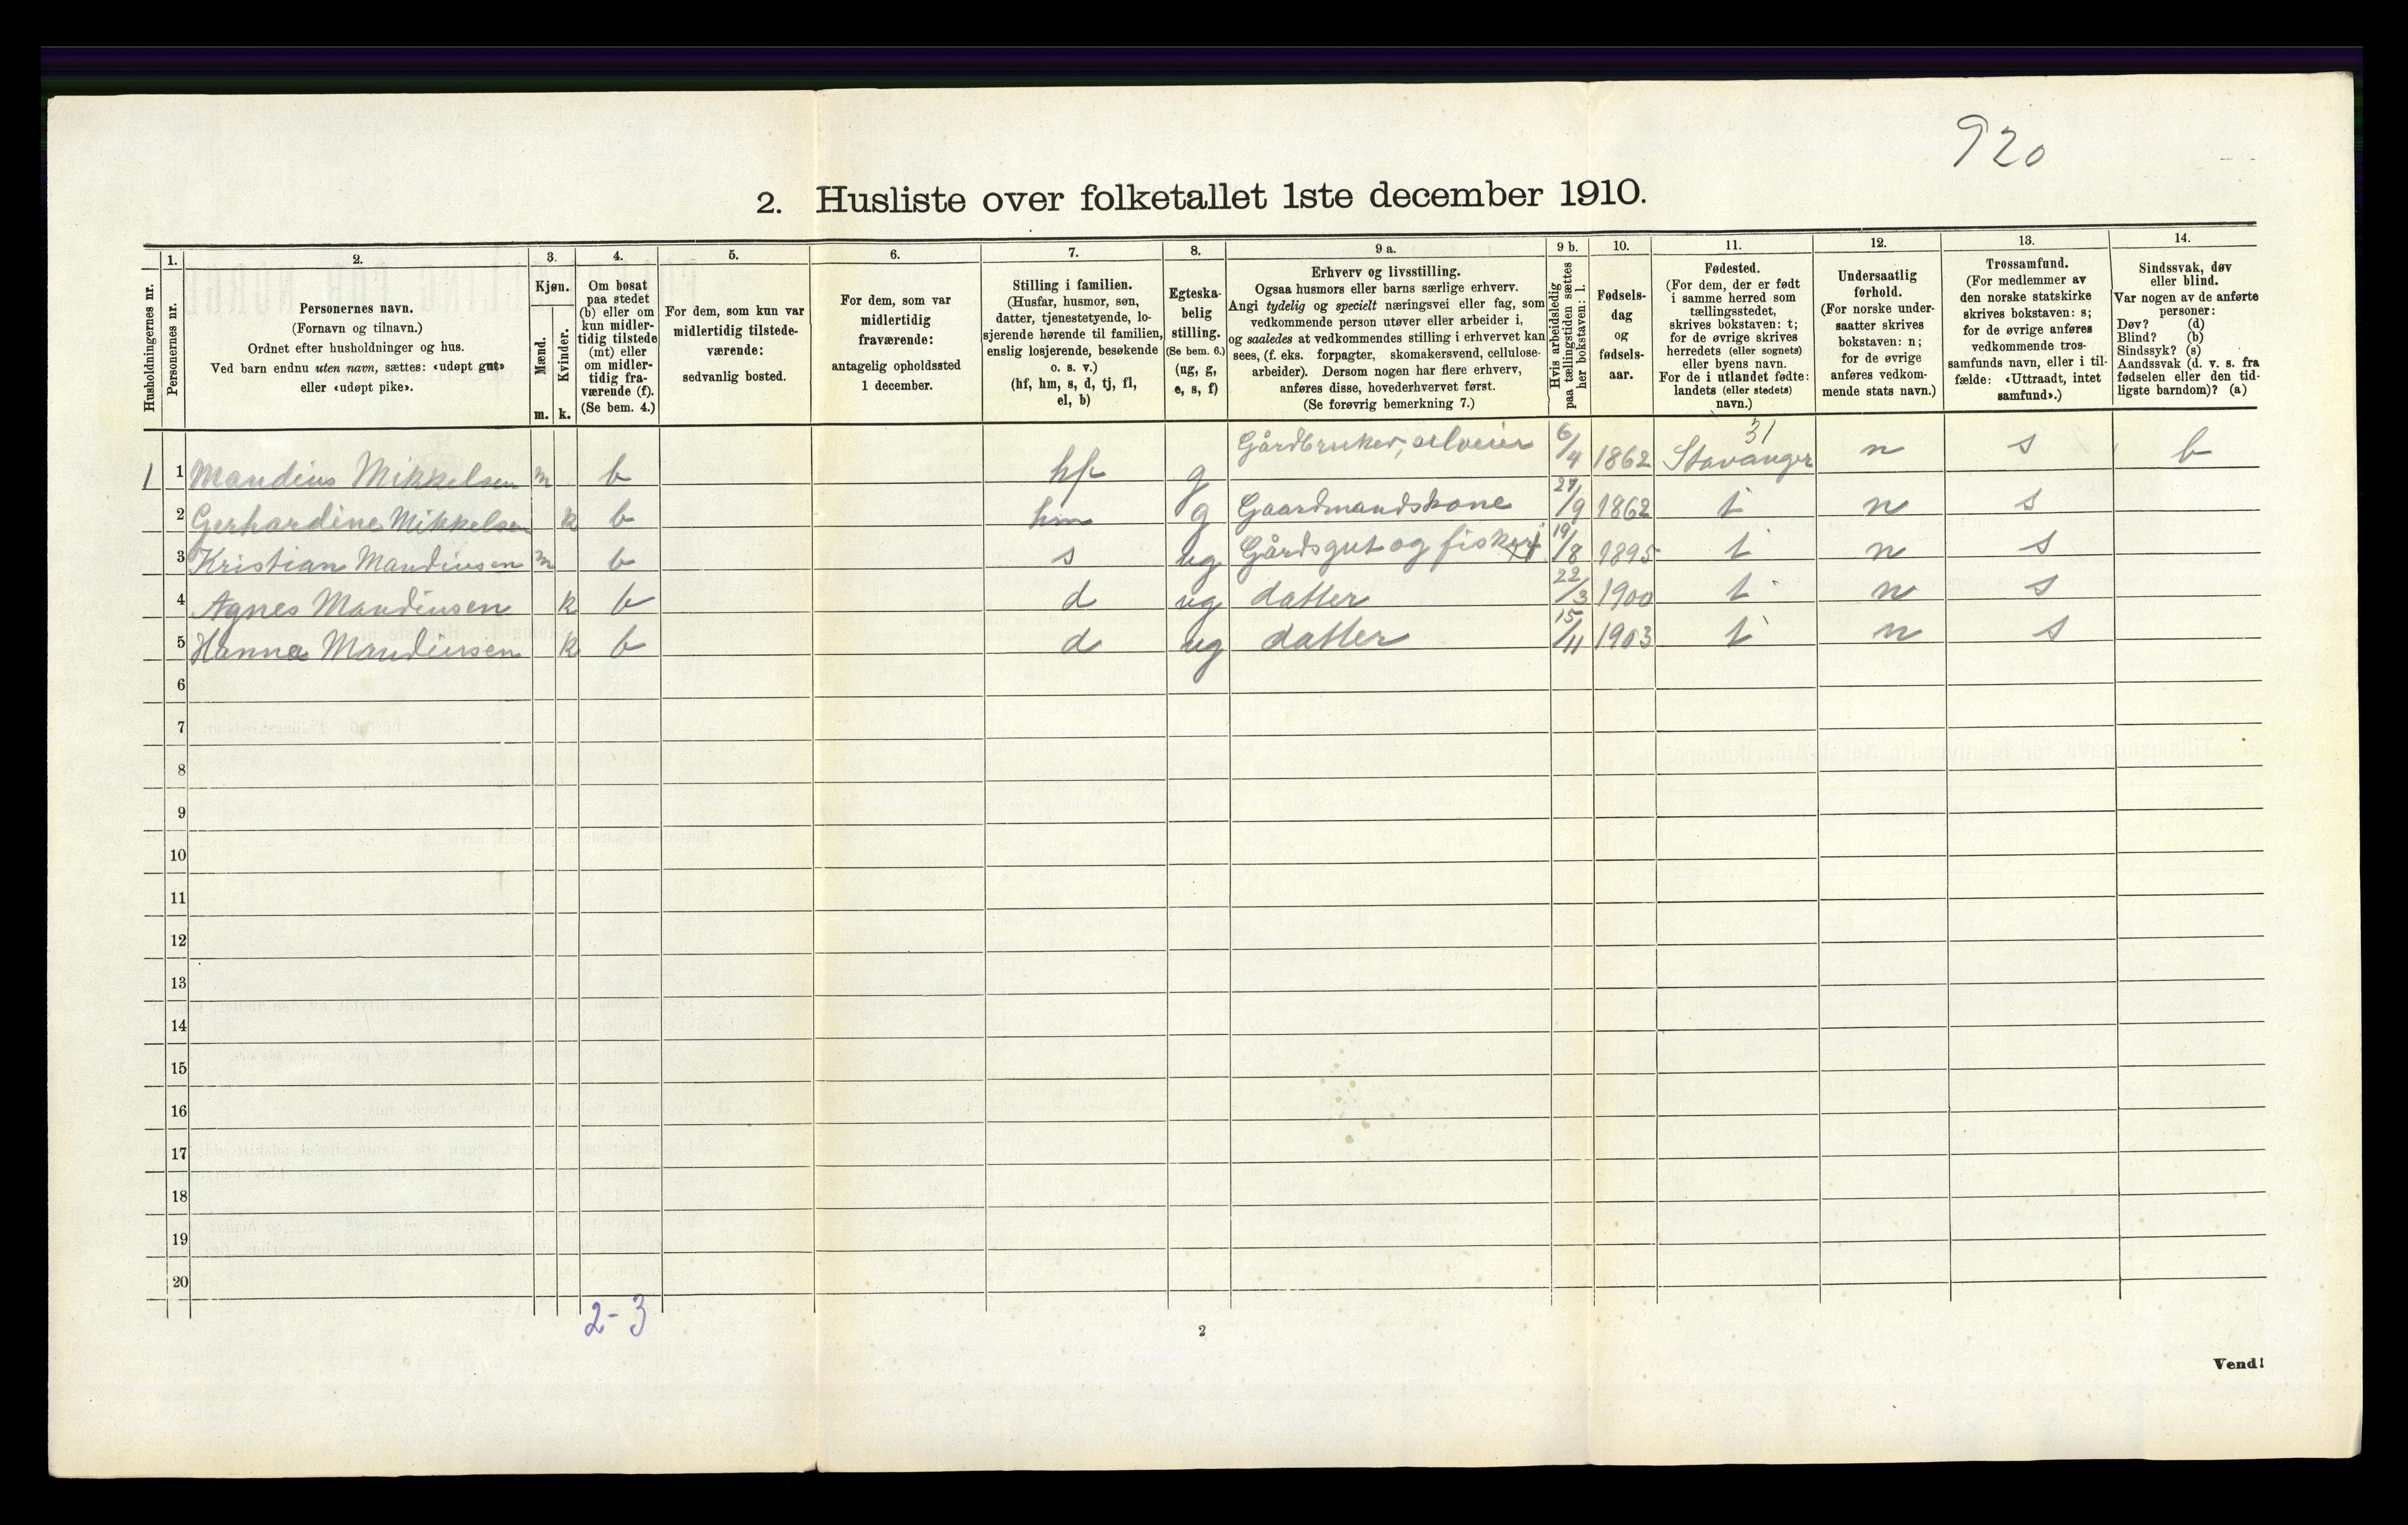 920
2. Husliste over folketallet 1ste december 1910.
Husholdningernes nr.
1.
Personernes nr.
2.
Personernes navn.
(Fornavn og tilnavn.)
Ordnet efter husholdninger og hus.
Ved barn endnu uten navn, sættes: «udøpt gut»
eller «udøpt pike».
3.
Kjøn.
Mænd.
Kvinder.
m. k.
4.
Om bosat
paa stedet
(b) eller om
kun midler-
tidig tilstede
(mt) eller
om midler-
tidig fra-
værende (f).
(Se bem. 4.)
5.
For dem, som kun var
midlertidig tilstede-
værende:
sedvanlig bosted.
6.
For dem, som var
midlertidig
fraværende:
antagelig opholdssted
1 december.
7.
Stilling i familien.
(Husfar, husmor, søn,
datter, tjenestetyende, lo-
sjerende hørende til familien,
enslig losjerende, besøkende
o. s. v.)
(hf, hm, s, d, tj, fl,
el, b)
8.
Egteska-
belig
stilling.
(Se bem. 6.)
(ug, g,
e, s, f)
9 a.
Erhverv og livsstilling.
Ogsaa husmors eller barns særlige erhverv.
Angi tydelig og specielt næringsvei eller fag, som
vedkommende person utøver eller arbeider i,
og saaledes at vedkommendes stilling i erhvervet kan
sees, (f. eks. forpagter, skomakersvend, cellulose-
arbeider). Dersom nogen har flere erhverv,
anføres disse, hovederhvervet først.
(Se forøvrig bemerkning 7.)
9 b.
Hvis arbeidsledig
paa tællingstiden sættes
her bokstaven: l.
10.
Fødsels-
dag
og
fødsels-
aar.
11.
Fødested.
(For dem, der er født
i samme herred som
tællingsstedet,
skrives bokstaven: t;
for de øvrige skrives
herredets (eller sognets)
eller byens navn.
For de i utlandet fødte:
landets (eller stedets)
navn.)
12.
Undersaatlig
forhold.
(For norske under-
saatter skrives
bokstaven: n;
for de øvrige
anføres vedkom-
mende stats navn.)
13.
Trossamfund.
(For medlemmer av
den norske statskirke
skrives bokstaven: s;
for de øvrige anføres
vedkommende tros-
samfunds navn, eller i til-
fælde: «Uttraadt, intet
samfund».)
14.
Sindssvak, døv
eller blind.
Var nogen av de anførte
personer:
Døv? (d)
Blind? (b)
Sindssyk? (s)
Aandssvak (d. v. s. fra
fødselen eller den tid-
ligste barndom)? (a)
31
1 1 Mandius Mikkelsen m b hf g Gårdbruker, selveier 6/4 1862 Stavanger n s b
2 Gerhardine Mikkelsen k b hm g Gaardmandskone 27/9 1862 t n s
3 Kristian Mandiusen m b s ug Gårdsgut og fiskeri 19/8 1895 t n s
4 Agnes Mandiusen k b d ug datter 22/3 1900 t n s
5 Hanna Mandiusen k b d ug datter 15/11 1903 t n s
6
7
8
9
10
11
12
13
14
15
16
17
18
19
20
2-3
2
Vend!